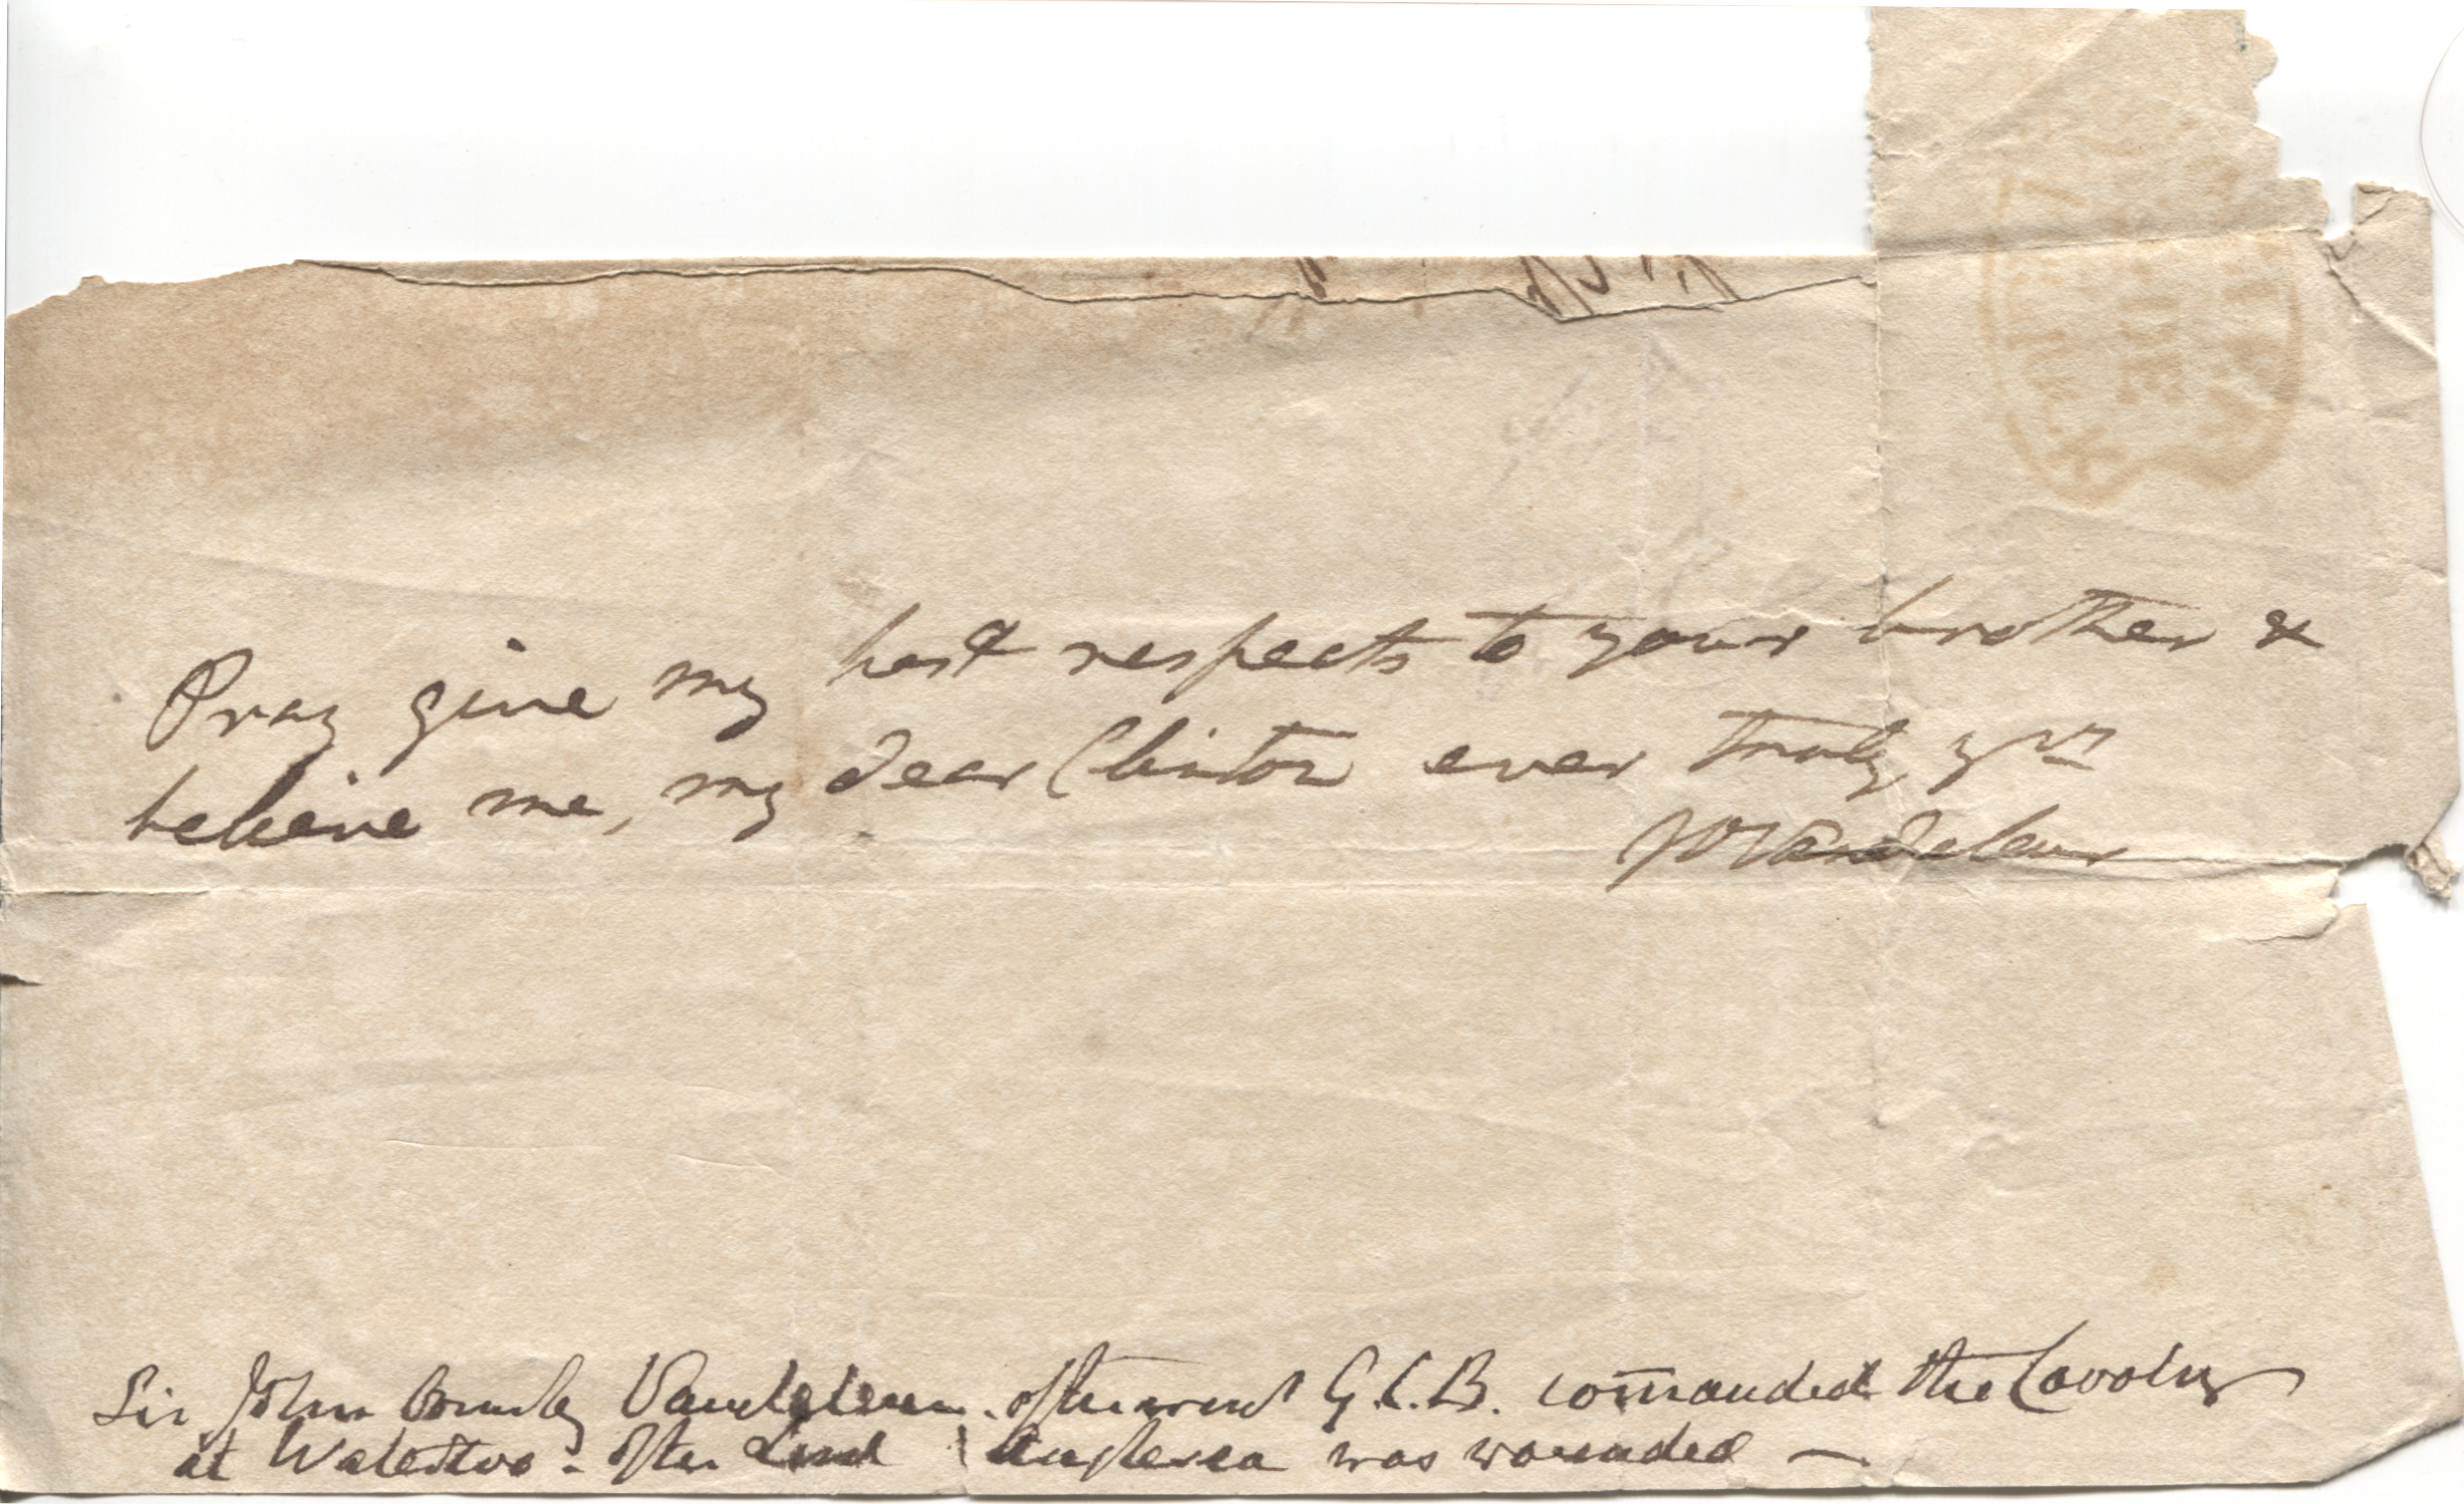 Pray give my best respects to your brother &
believe me, my dear Clinton ever truly yrs
JOVandeleur
Sir John Ormsby Vandeleur. afterward G.C.B. commanded the Cavalry
at Waterloo - after Lord Anglesea was wounded —